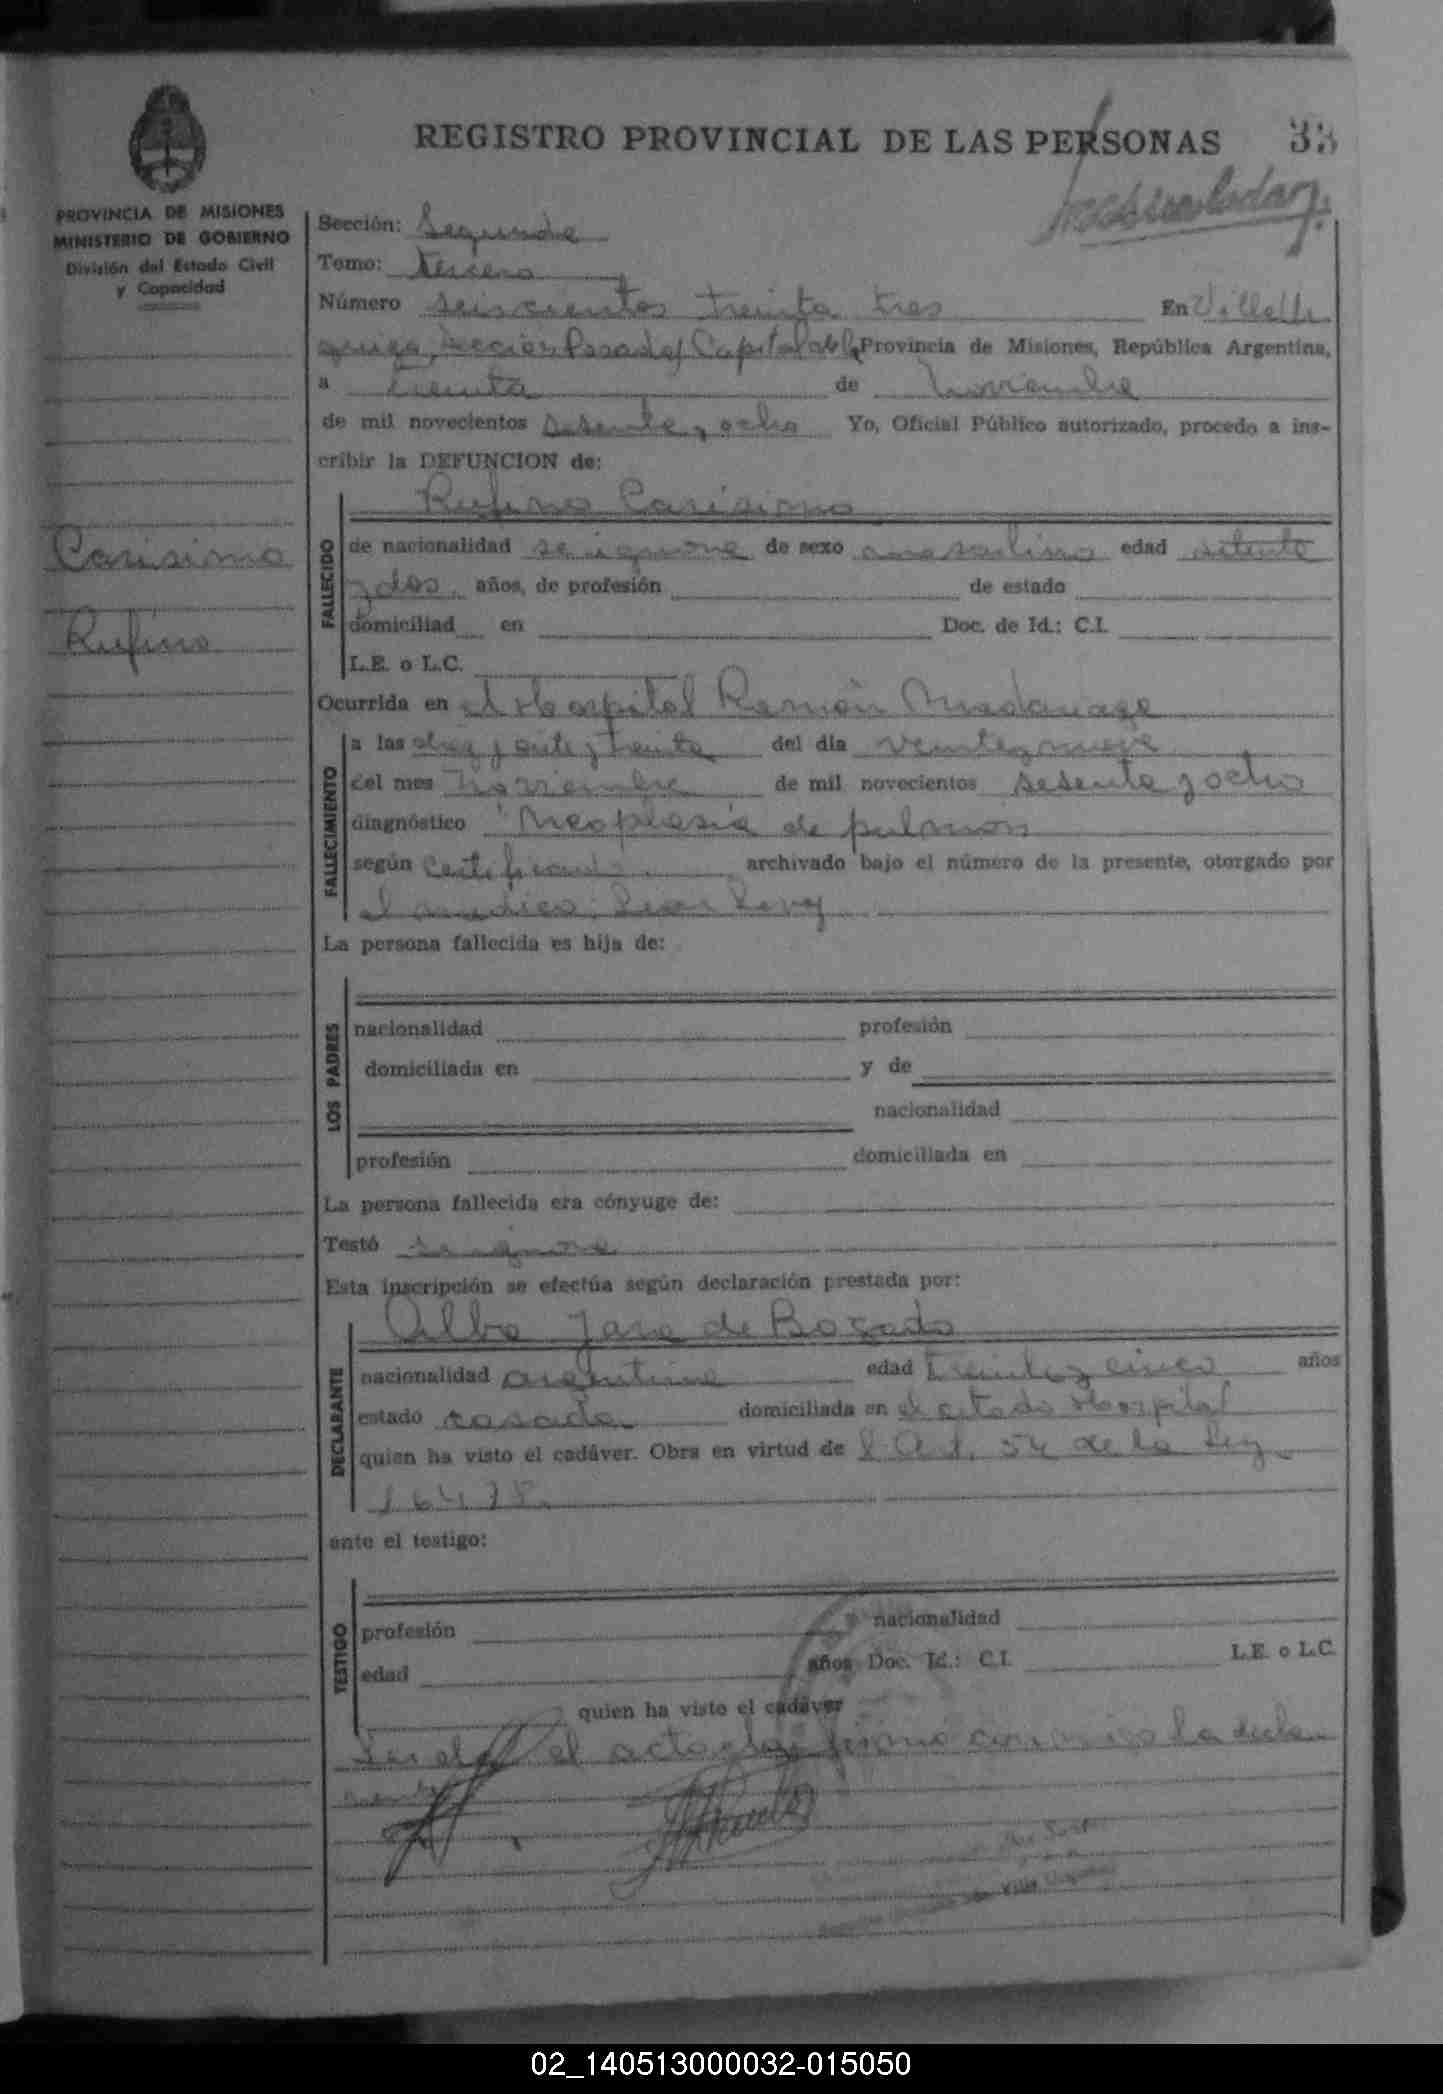 REGISTRO PROVINCIAL DE LAS PERSONAS 33
PROVINCIA DE MISIONES
MINISTERIO DE GOBIERNO
División del Estado Civil
y Capacidad
Sección: Segunda
Tomo: tercero
Número seiscientos treinta tres En Villa U
rquiza, Sección Posadas Capital de la Provincia de Misiones, República Argentina,
a treinta de noviembre
de mil novecientos sesenta y ocho Yo, Oficial Público autorizado, procedo a ins-
cribir la DEFUNCION de:
Carisimo
Rufino
FALLECIDO
Rufino Carisimo
de nacionalidad se ignora de sexo masculino edad setenta
y dos años, de profesión de estado
domiciliad en Doc. de Id.: C.I.
L.E. o L.C.
Ocurrida en el Hospital Ramón Madariaga
FALLECIMIENTO
a las diez y siete y treinta del dia veinte y nueve
del mes noviembre de mil novecientos sesenta y ocho
diagnóstico Neoplasia de pulmón
según certificado archivado bajo el número de la presente, otorgado por
el medico: Levy
La persona fallecida es hija de:
LOS PADRES
nacionalidad profesión
domiciliada en y de
nacionalidad
profesión domiciliada en
La persona fallecida era cónyuge de:
Testó se ignora
Esta inscripción se efectúa según declaración prestada por:
DECLARANTE
Alba Jara de Bogado
nacionalidad argentina edad treinta y cinco años
estado casada domiciliada en el citado Hospital
quien ha visto el cadáver. Obra en virtud de l Art. 54 de la Ley
16478.
ante el testigo:
TESTIGO
profesión nacionalidad
edad años Doc. Id.: C.I. L.E. o L.C.
quien ha visto el cadáver
Leida el acta la firmó conmigo la decla
rante
02_140513000032-015050